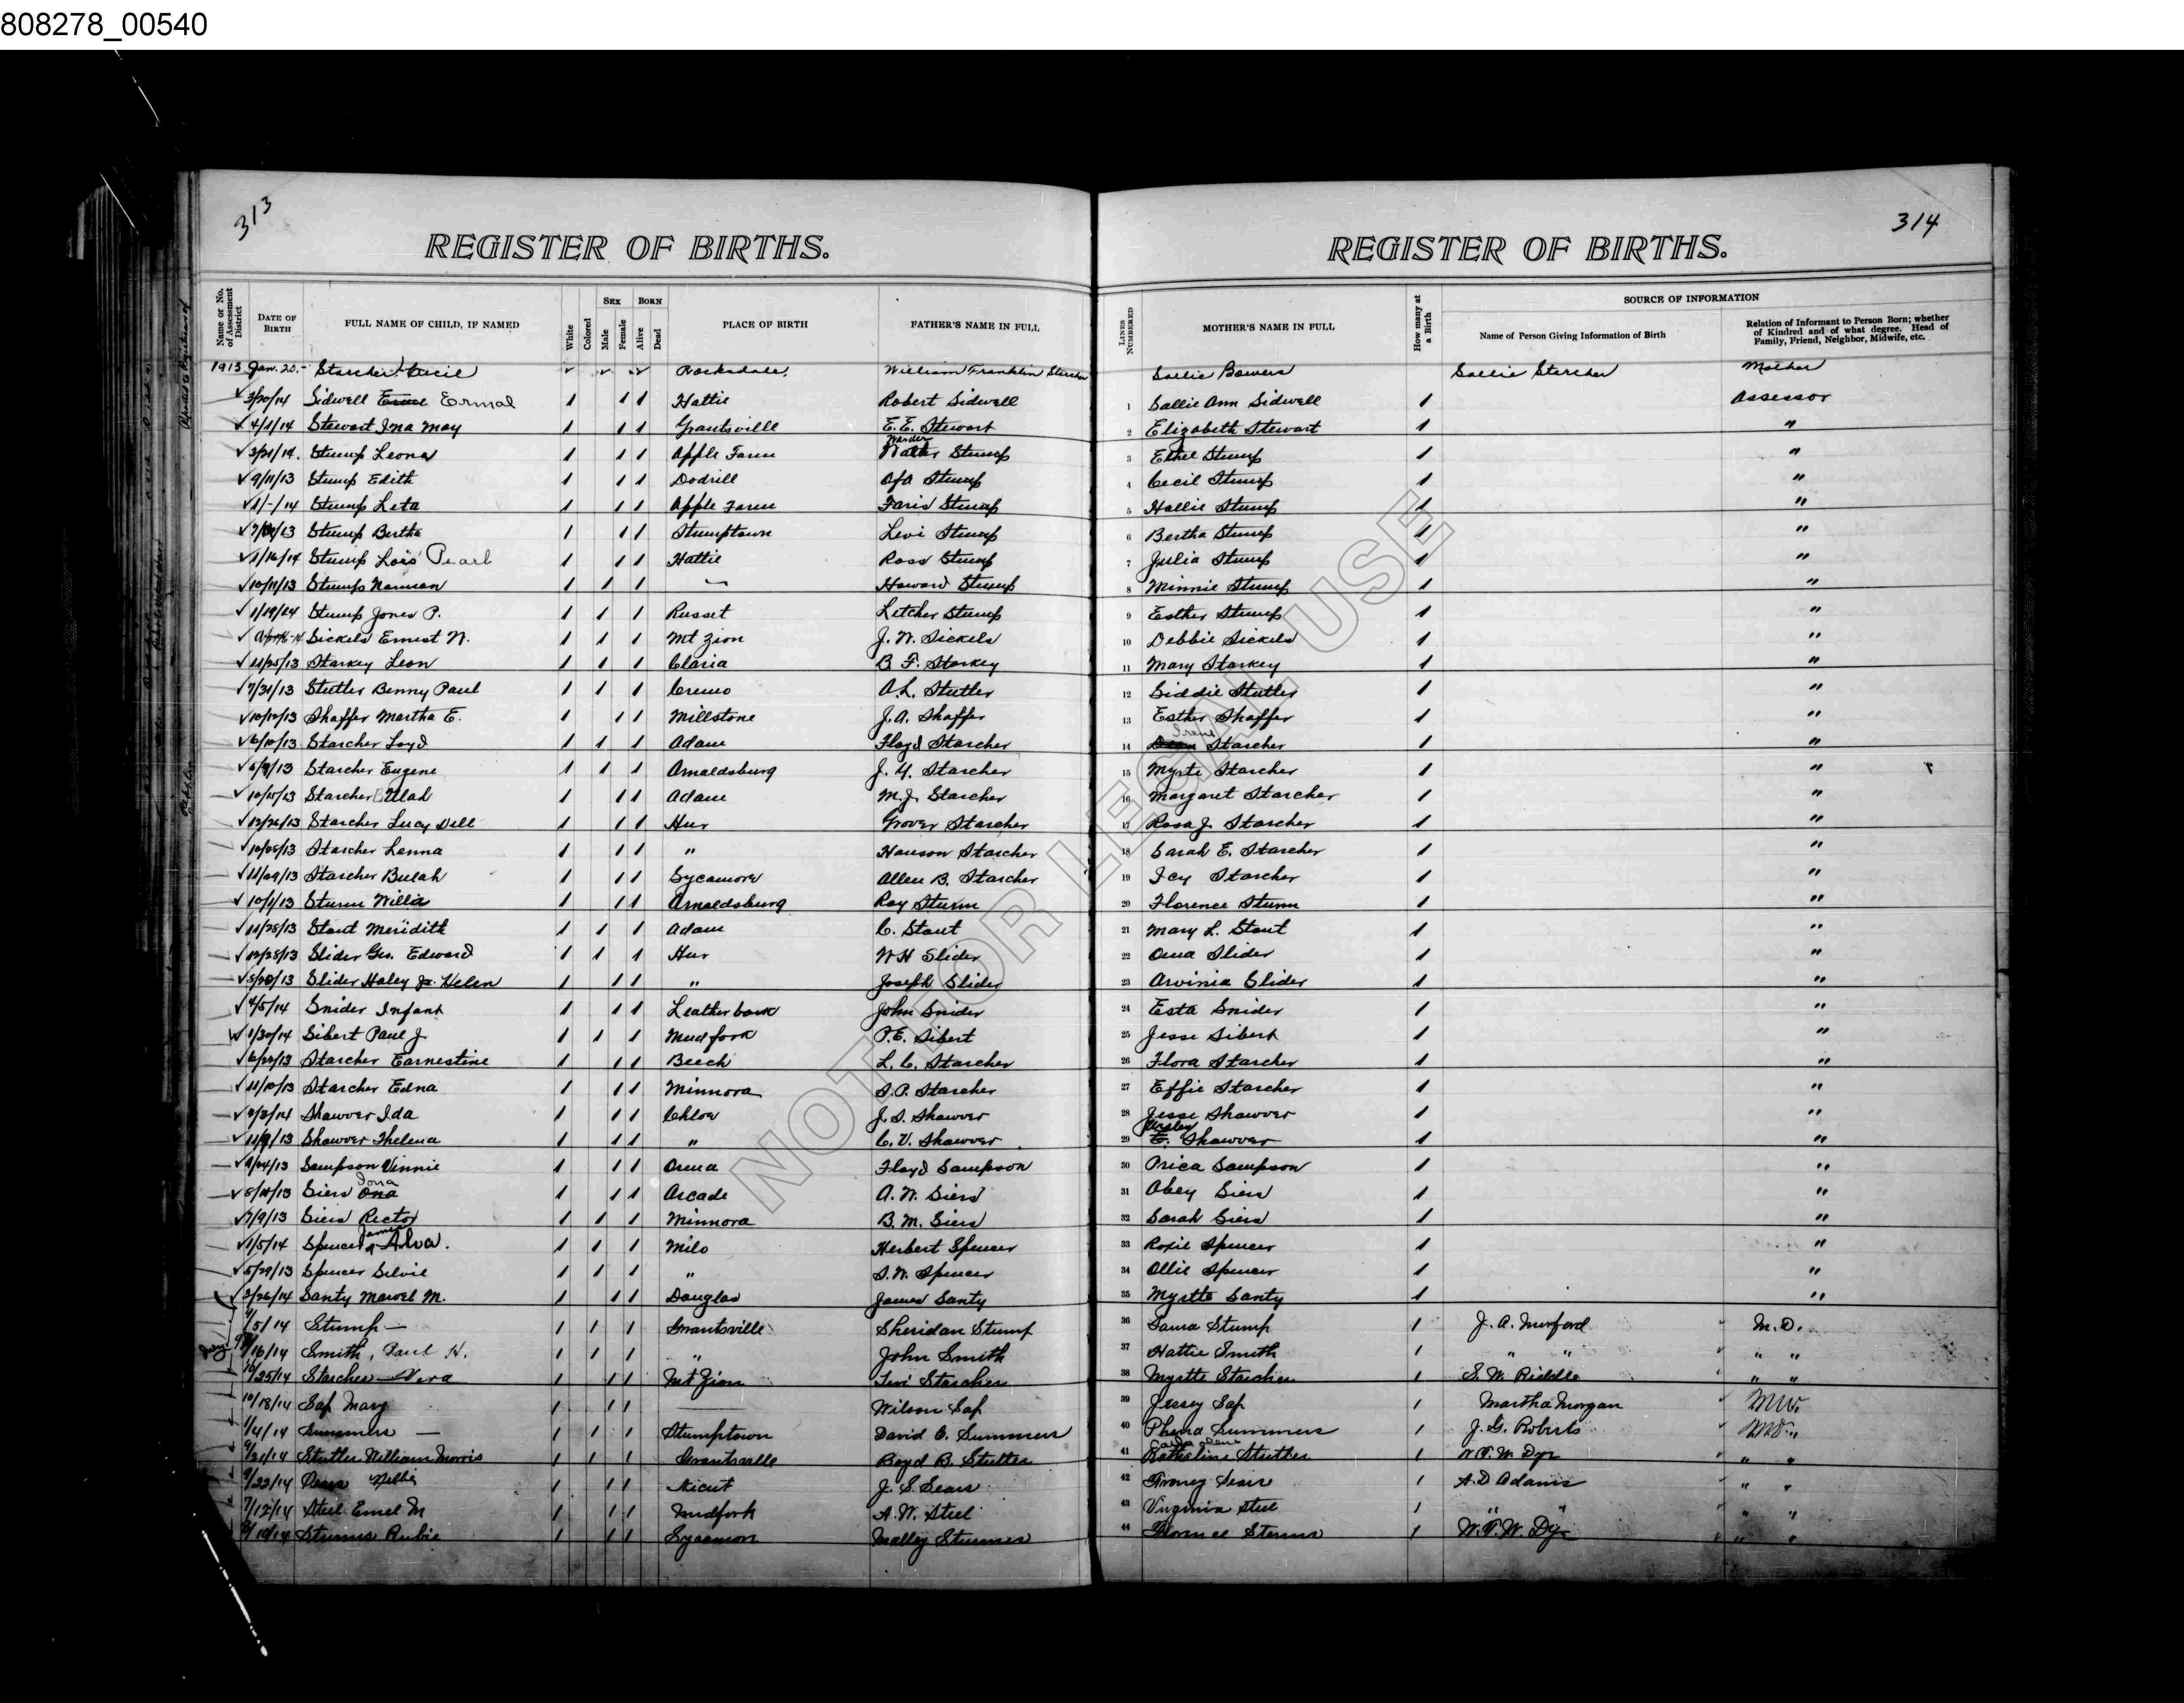 808278_00540
313
REGISTER OF BIRTHS.
314
REGISTER OF BIRTHS.
Name or No. of Assessment District | DATE OF BIRTH | FULL NAME OF CHILD, IF NAMED | White | Colored | SEX Male | Female | BORN Alive | Dead | PLACE OF BIRTH | FATHER'S NAME IN FULL | LINES NUMBERED | MOTHER'S NAME IN FULL | How many at a Birth | SOURCE OF INFORMATION | Name of Person Giving Information of Birth | Relation of Informant to Person Born; whether of Kindred and of what degree. Head of Family, Friend, Neighbor, Midwife, etc.
1913 Jan. 20. Starcher Cecil Rocksdale. William Franklin Starcher Sallie Bowers Sallie Starcher Mother
3/20/14 Sidwell Ermal 1 1 1 Hattie Robert Sidwell 1 Sallie Ann Sidwell 1 Assessor
4/1/14 Stewart Ina May 1 1 1 Grantsville E. E. Stewart 2 Elizabeth Stewart 1 "
3/21/14. Stump Leona 1 1 1 Apple Farm Stump 3 Ethel Stump 1 "
9/11/13 Stump Edith 1 1 1 Dodrill Asa Stump 4 Cecil Stump 1 "
1/-/14 Stump Leta 1 1 1 Apple Farm Faris Stump 5 Hallie Stump 1 "
Stump Bertha 1 1 1 Stumptown Levi Stump 6 Bertha Stump 1 "
1/16/14 Stump Lois Pearl 1 1 1 Hattie Ross Stump 7 Julia Stump 1 "
10/11/13 Stump Norman 1 1 1 " Howard Stump 8 Minnie Stump 1 "
1/19/14 Stump Jones P. 1 1 1 Russet Letcher Stump 9 Esther Stump 1 "
Sickels Ernest N. 1 1 1 Mt Zion J. N. Sickels 10 Debbie Sickels 1 "
11/25/13 Starkey Leon 1 1 1 Claria B. F. Starkey 11 Mary Starkey 1 "
7/31/13 Stutler Benny Paul 1 1 1 Cremo A. L. Stutler 12 Siddie Stutler 1 "
10/12/13 Shaffer Martha E. 1 1 1 Millstone J. A. Shaffer 13 Esther Shaffer 1 "
6/10/13 Starcher Loyd 1 1 1 Adam Floyd Starcher 14 Starcher 1 "
5/9/13 Starcher Eugene 1 1 1 Arnoldsburg J. Y. Starcher 15 Myrte Starcher 1 "
10/15/13 Starcher 1 1 1 Adam M. J. Starcher 16 Margaret Starcher 1 "
12/26/13 Starcher Lucy Dell 1 1 1 Hur Grover Starcher 17 Rosa J. Starcher 1 "
10/28/13 Starcher Lenna 1 1 1 " Hanson Starcher 18 Sarah E. Starcher 1 "
11/29/13 Starcher Bulah 1 1 1 Sycamore Allen B. Starcher 19 Icy Starcher 1 "
10/1/13 Sturm Willia 1 1 1 Arnoldsburg Roy Sturm 20 Florence Sturm 1 "
11/28/13 Stout Meridith 1 1 1 Adam C. Stout 21 Mary L. Stout 1 "
12/28/13 Slider Geo. Edward 1 1 1 Hur W H Slider 22 Oma Slider 1 "
5/20/13 Slider Haley Jr. Helen 1 1 1 " Joseph Slider 23 Arvinia Slider 1 "
4/5/14 Snider Infant 1 1 1 Leatherbark John Snider 24 Esta Snider 1 "
1/30/14 Sibert Paul J. 1 1 1 Mudfork P. E. Sibert 25 Jesse Sibert 1 "
6/22/13 Starcher Earnestine 1 1 1 Beech L. C. Starcher 26 Flora Starcher 1 "
11/10/13 Starcher Edna 1 1 1 Minnora S. P. Starcher 27 Effie Starcher 1 "
2/3/14 Shawver Ida 1 1 1 Chloe J. S. Shawver 28 Jesse Shawver 1 "
11/9/13 Shawver Thelma 1 1 1 " C. V. Shawver 29 Shawver 1 "
9/24/13 Sampson Vinnie 1 1 1 Orma Floyd Sampson 30 Orica Sampson 1 "
5/11/13 Siers Ona Iona 1 1 1 Arcade A. N. Siers 31 Obey Siers 1 "
7/9/13 Siers Rector 1 1 1 Minnora B. M. Siers 32 Sarah Siers 1 "
1/5/14 Spencer James Alva. 1 1 1 Milo Herbert Spencer 33 Roxie Spencer 1 "
5/29/13 Spencer Silvie 1 1 1 " S. N. Spencer 34 Ollie Spencer 1 "
2/26/14 Santy Marvel M. 1 1 1 Douglas James Santy 35 Myrtle Santy 1 "
/5/14 Stump — 1 1 1 Grantsville Sheridan Stump 36 Laura Stump 1 J. A. Morford M.D.
/16/14 Smith, Paul H. 1 1 1 " John Smith 37 Hattie Smith 1 " " " "
10/25/14 Starcher Vera 1 1 1 Mt Zion Levi Starcher 38 Myrtle Starcher 1 S. W. Riddle " "
10/18/14 Sap Mary 1 1 1 Wilson Sap 39 Jessey Sap 1 Martha Morgan MW.
1/4/14 Summers — 1 1 1 Stumptown David C. Summers 40 Phena Summers 1 J. G. Roberts MD. "
9/21/14 Stutler William Morris 1 1 1 Grantsville Boyd B. Stutler 41 Stutler 1 W. T. W. Dye " "
9/22/14 Nellie 1 1 1 Nicut J. S. Sears 42 Sears 1 A. D Adams " "
7/12/14 Steel Emel M 1 1 1 Mudfork A. W. Steel 43 Virginia Steel 1 " " " "
/10/14 Sturms Rubie 1 1 1 Sycamore Malley Sturmes 44 Florence Sturms 1 W. T. W. Dye " "
NOT FOR LEGAL USE